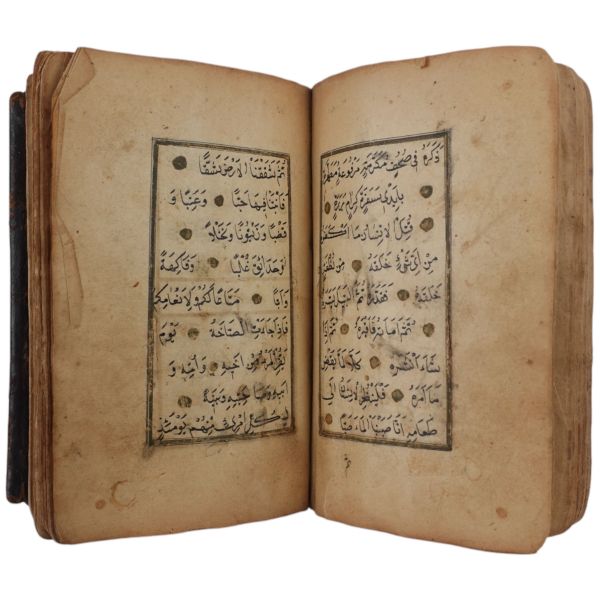 ذَكَرَهُ فِي صُحُفٍ مُكَرَّمَةٍ مَرْفُوعَةٍ مُطَهَّرَةٍ
بِاَيْدِي سَفَرَةٍ كِرَامٍ بَرَرَةٍ
قُتِلَ الْاِنْسَانُ مَا اَكْفَرَهُ
مِنْ اَيِّ شَيْءٍ خَلَقَهُ مِنْ نُطْفَةٍ
خَلَقَهُ فَقَدَّرَهُ ثُمَّ السَّبِيلَ يَسَّرَهُ
ثُمَّ اَمَاتَهُ فَاَقْبَرَهُ ثُمَّ اِذَا
شَاءَ اَنْشَرَهُ كَلَّا لَمَّا يَقْضِ
مَا اَمَرَهُ فَلْيَنْظُرِ الْاِنْسَانُ اِلَى
طَعَامِهِ اَنَّا صَبَبْنَا الْمَاءَ صَبًّا
ثم
ثُمَّ شَقَقْنَا الْاَرْضَ شَقًّا
فَاَنْبَتْنَا فِيهَا حَبًّا وَعِنَبًا وَ
قَضْبًا وَزَيْتُونًا وَنَخْلًا
وَحَدَائِقَ غُلْبًا وَفَاكِهَةً
وَاَبًّا مَتَاعًا لَكُمْ وَلِاَنْعَامِكُمْ
فَاِذَا جَاءَتِ الصَّاخَّةُ يَوْمَ
يَفِرُّ الْمَرْءُ مِنْ اَخِيهِ وَاُمِّهِ وَ
اَبِيهِ وَصَاحِبَتِهِ وَبَنِيهِ
لِكُلِّ امْرِئٍ مِنْهُمْ يَوْمَئِذٍ